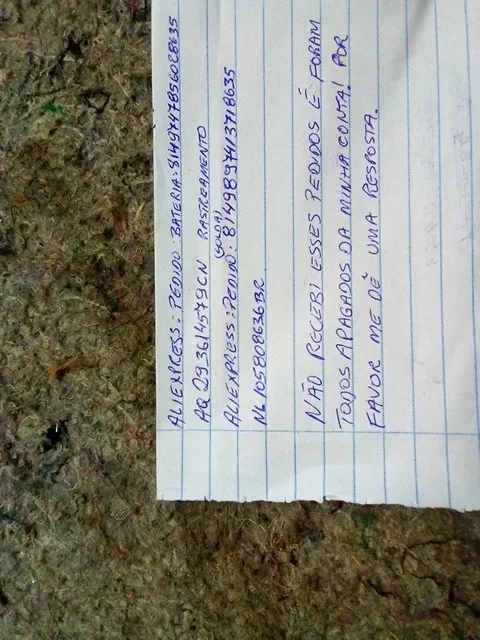 ALIEXPRESS: PEDIDO: BATERIA: 8149747856028635
AQ293614579CN RASTREAMENTO
(SOLDA)
ALIEXPRESS: PEDIDO: 8149897413718635
NB105808636BR
NÃO RECEBI ESSES PEDIDOS É FORAM
TODOS APAGADOS DA MINHA CONTA! POR
FAVOR ME DÊ UMA RESPOSTA.